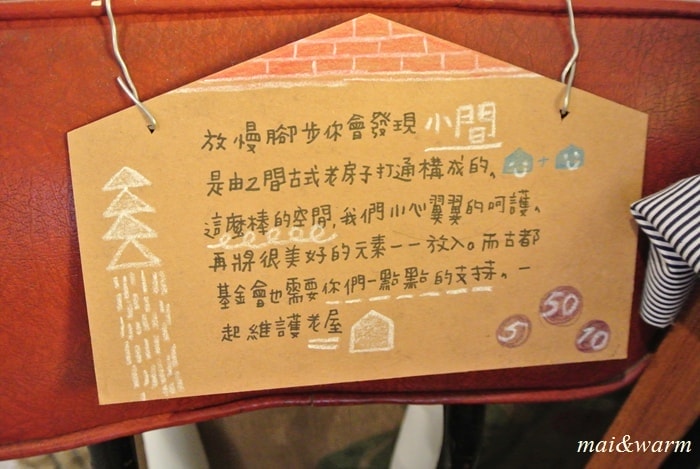 放慢腳步你會發現 小間
是由2間古式老房子打通構成的。 +
這麼棒的空間,我們小心翼翼的呵護。
再將很美好的元素一一放入。而古都
基金會也需要你們一點點的支持。一
起維護老屋
5 50 10
mai&warm